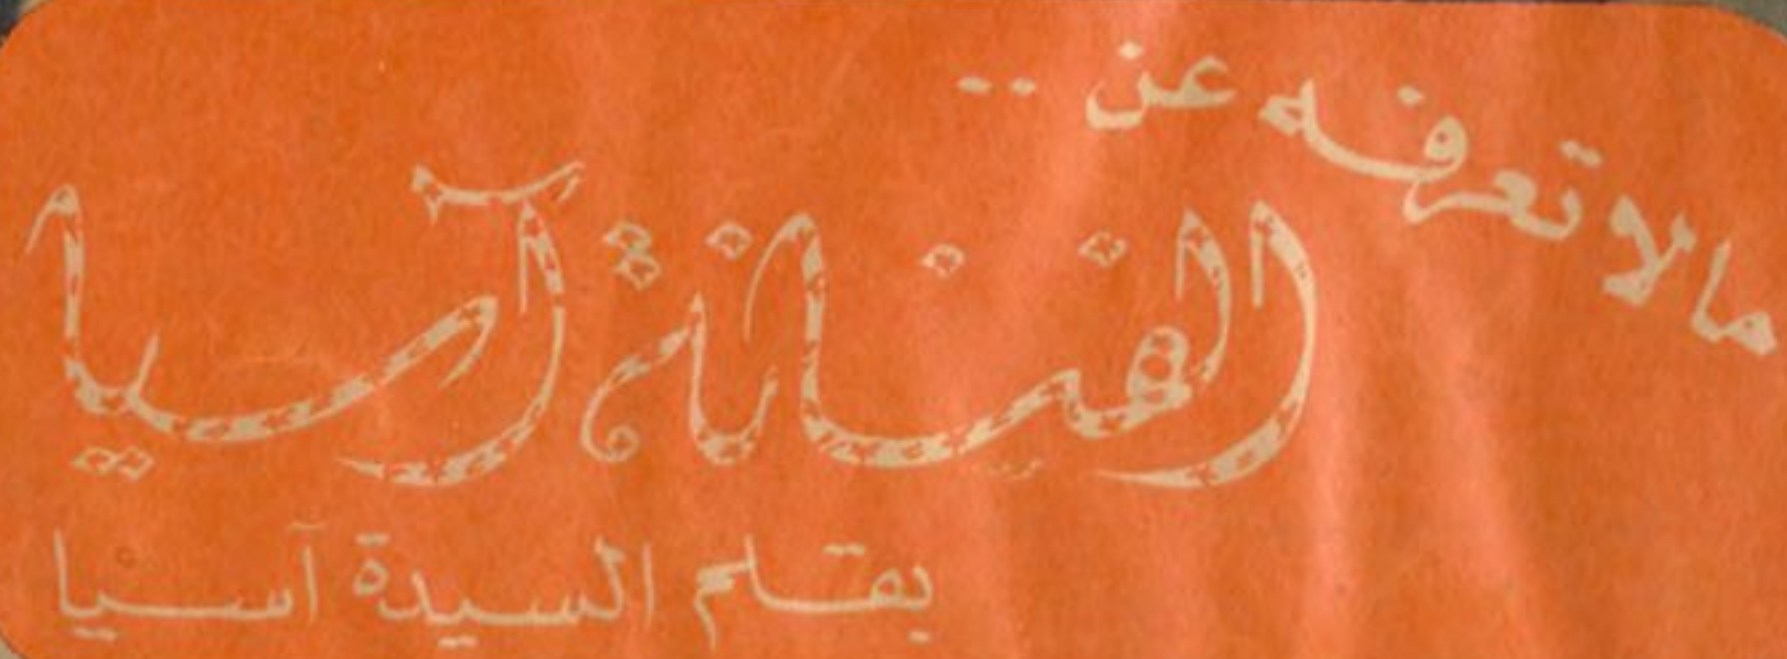 ما لا تعرفه عن ..
الفنانة آسيا
بقلم السيدة آسيا